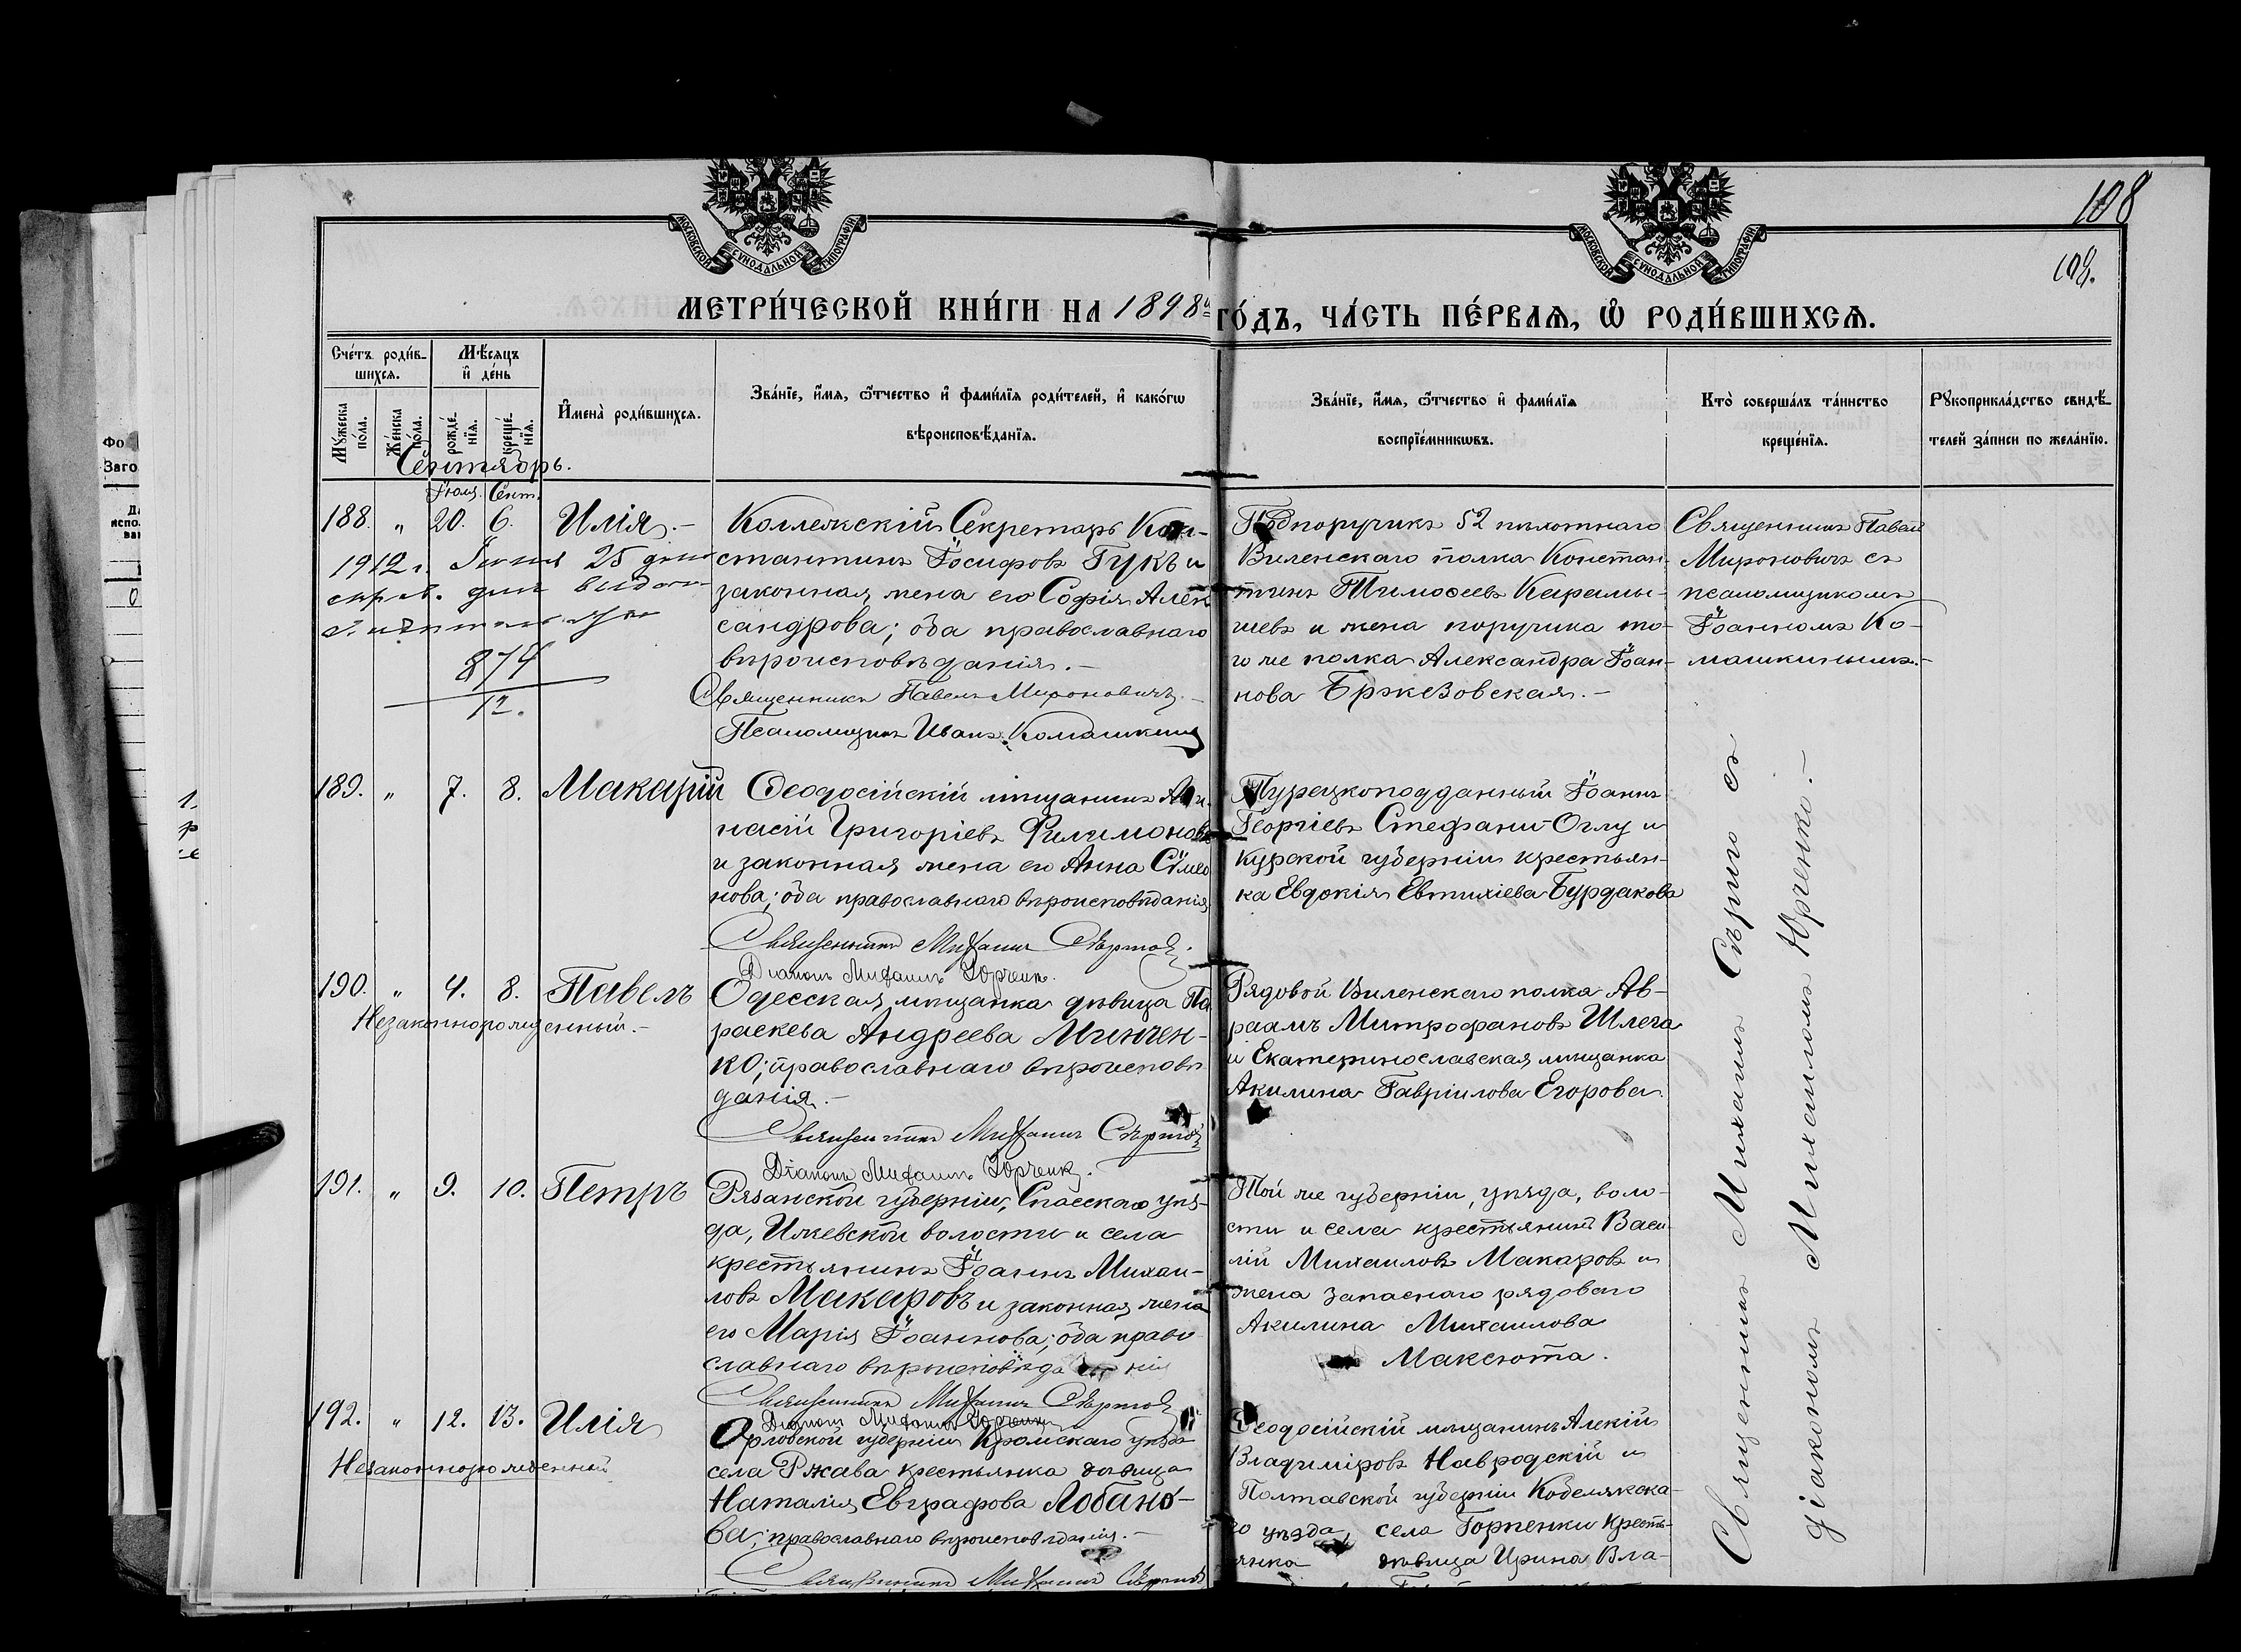 108
108.
МОСКОВСКОЙ СѴНОДАЛЬНОЙ ТИПОГРАФІИ
МОСКОВСКОЙ СѴНОДАЛЬНОЙ ТИПОГРАФІИ
МЕТРИ́ЧЕСКОЙ КНИ́ГИ НА 1898й ГО́ДЪ, ЧА́СТЬ ПЕ́РВАѦ, Ѽ РОДИ́ВШИХСѦ.
Сче́тъ роди́в-
шихсѧ.
Мѣ́сяцъ
и҆ де́нь
Мꙋ́жеска по́ла.
Же́нска по́ла.
рожде́-
нїѧ.
креще́-
нїѧ.
И҆мена̀ роди́вшихсѧ.
Зва́нїе, и҆́мѧ, ѻ҆́тчество и҆ фами́лїѧ роди́телей, и҆ како́гѡ
вѣроисповѣ́данїѧ.
Зва́нїе, и҆́мѧ, ѻ҆́тчество и҆ фами́лїѧ
воспрїе́мникѡвъ.
Кто̀ соверша́лъ та́инство
креще́нїѧ.
Рꙋкоприкла́дство свидѣ́-
телей за́писи по жела́нїю.
Сентябрь.
Іюля. Сент.
188. „ 20. 6. Илія.-
Коллежскій Секретарь Кон-
стантинъ Іосифовъ Гукъ и
законная жена его Софія Алек
сандрова; оба православнаго
вѣроисповѣданія.-
Священникъ Павелъ Мироновичъ.-
Псаломщикъ Иванъ Комашкинъ
1912 г. 25 дня
874
12.
Подпоручикъ 52 пѣхотнаго
Виленскаго полка Констан-
тинъ Тимоѳеевъ Карамы-
шевъ и жена поручика то-
го же полка Александра Іоан-
нова Бржезовская.-
Священникъ Павелъ
Мироновичъ съ
псаломщикомъ
Іоанномъ Ко-
машкинымъ.-
189. „ 7. 8. Макарій
Ѳеодосійскій мѣщанинъ
насій Григоріевъ Филимоновъ
и законная жена его Анна Симео
нова; оба православнаго вѣроисповѣданія
Священникъ Михаилъ Сѣрговъ.
Діаконъ Михаилъ Юрченко.
Турецкоподданный Іоаннъ
Георгіевъ Стефани-Оглу и
Курской губерніи крестьян-
ка Евдокія Евтихіева Бурдакова
190. „ 4. 8. Павелъ
Незаконнорожденный.-
Одесская мѣщанка дѣвица Па
раскева Андреева Минчен-
ко; православнаго вѣроисповѣ
данія.-
Священникъ Михаилъ
Діаконъ Михаилъ Юрченко.
Рядовой Виленскаго полка Ав-
раамъ Митрофановъ Шлега
и Екатеринославская мѣщанка
Акилина Гавріилова Егорова.
191. „ 9. 10. Петръ
Рязанской губерніи, Спасскаго уѣз-
да, Ижевской волости и села
крестьянинъ Іоаннъ Михаи-
ловъ Макаровъ и законная жена
его Марія Іоаннова; оба право
славнаго вѣроисповѣданія
Священникъ Михаилъ
Діаконъ Михаилъ Юрченко
Той же губерніи, уѣзда, воло-
сти и села крестьянинъ Васи-
лій Михаиловъ Макаровъ и
жена запаснаго рядового
Акилина Михаилова
Максюта.
192. „ 12. 13. Илія
Незаконнорожденный
Орловской губерніи Кромскаго уѣзда
села Ржава крестьянка дѣвица
Наталія Евграфова Лобано-
ва; православнаго вѣроисповѣданія.-
Священникъ Михаилъ
Ѳеодосійскій мѣщанинъ Алексій
Владиміровъ Навродскій и
Полтавской губерніи Кобелякска-
го уѣзда, села Горпенки кресть-
янка дѣвица Ирина Вла-
Священникъ Михаилъ съ
діакономъ Михаиломъ Юрченко.-